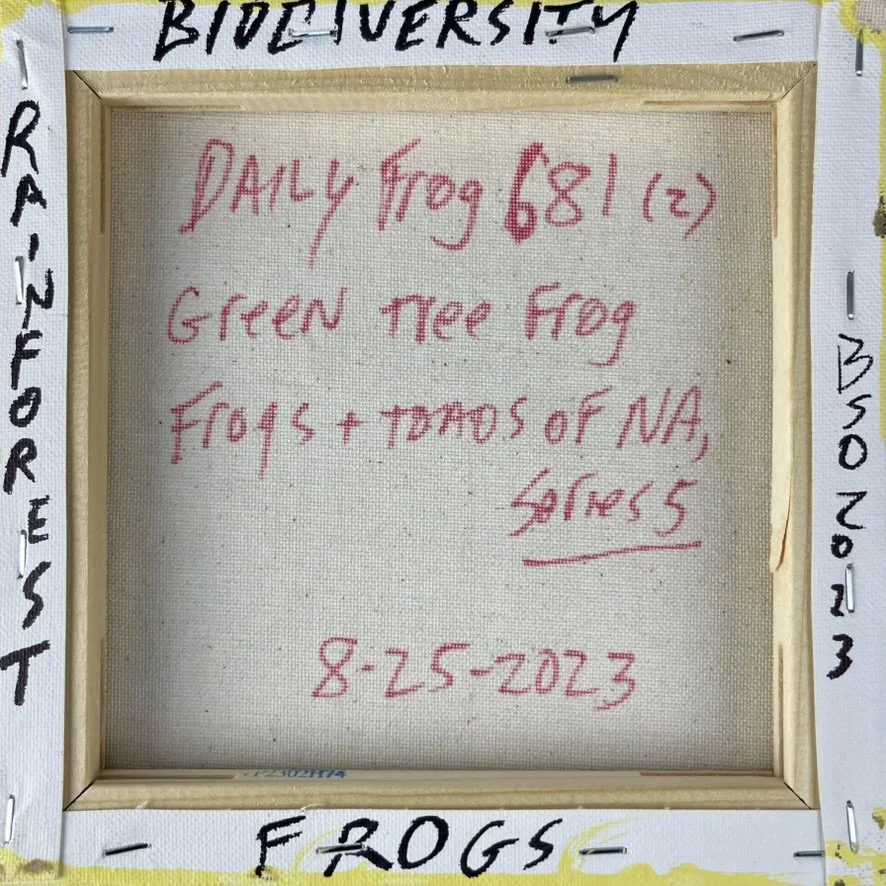 BIODIVERSITY
RAINFOREST
DAILY Frog 681 (2)
Green Tree Frog
Frogs + TOADS OF NA,
Series 5
8-25-2023
BSO2023
FROGS